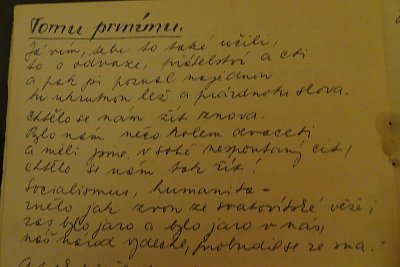 Tomu prvnímu.
Já vím, tebe to také učili,
to o odvaze, přátelství a cti
a pak jsi poznal najednou
tu ukrutnou lež a prázdnotu slova.
Chtělo se nám žít znova.
Bylo nám něco kolem dvaceti
a měli jsme v sobě nespoutaný cit,
chtělo se nám tak žít!
Socialismus, humanita –
znělo jak zvon ze svatovítské věže,
zas bylo jaro a bylo jaro v nás,
náš národ vydechl, probudil se ze sna.